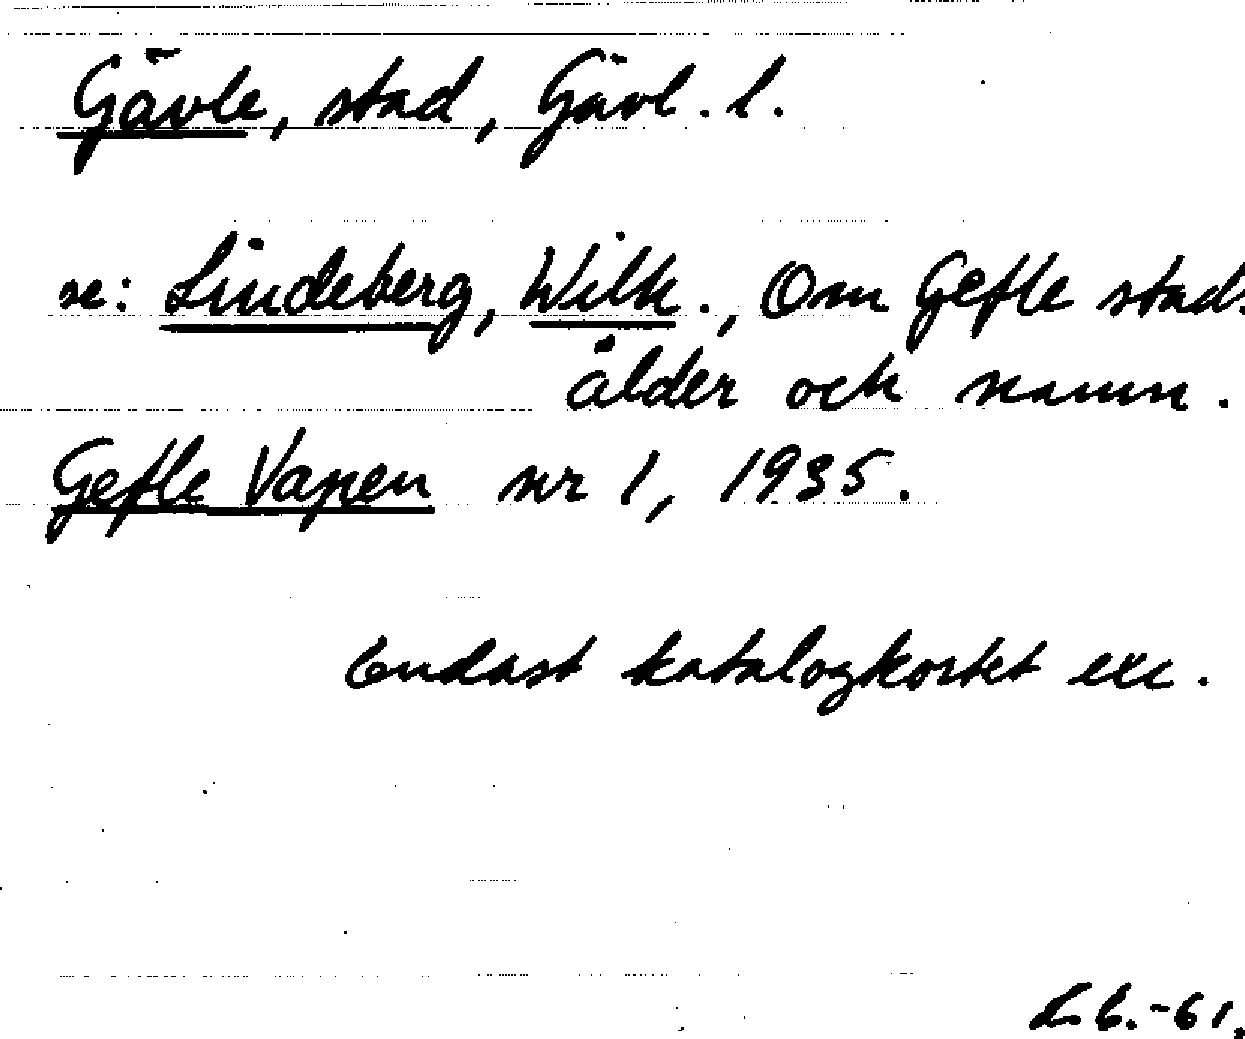 Gävle, stad, Gävl. l.
se: Lindeberg, Wilh., Om Gefle stads
ålder och namn.
Gefle Vapen nr 1, 1935.
Endast katalogkortet exc.
L. B. -61.